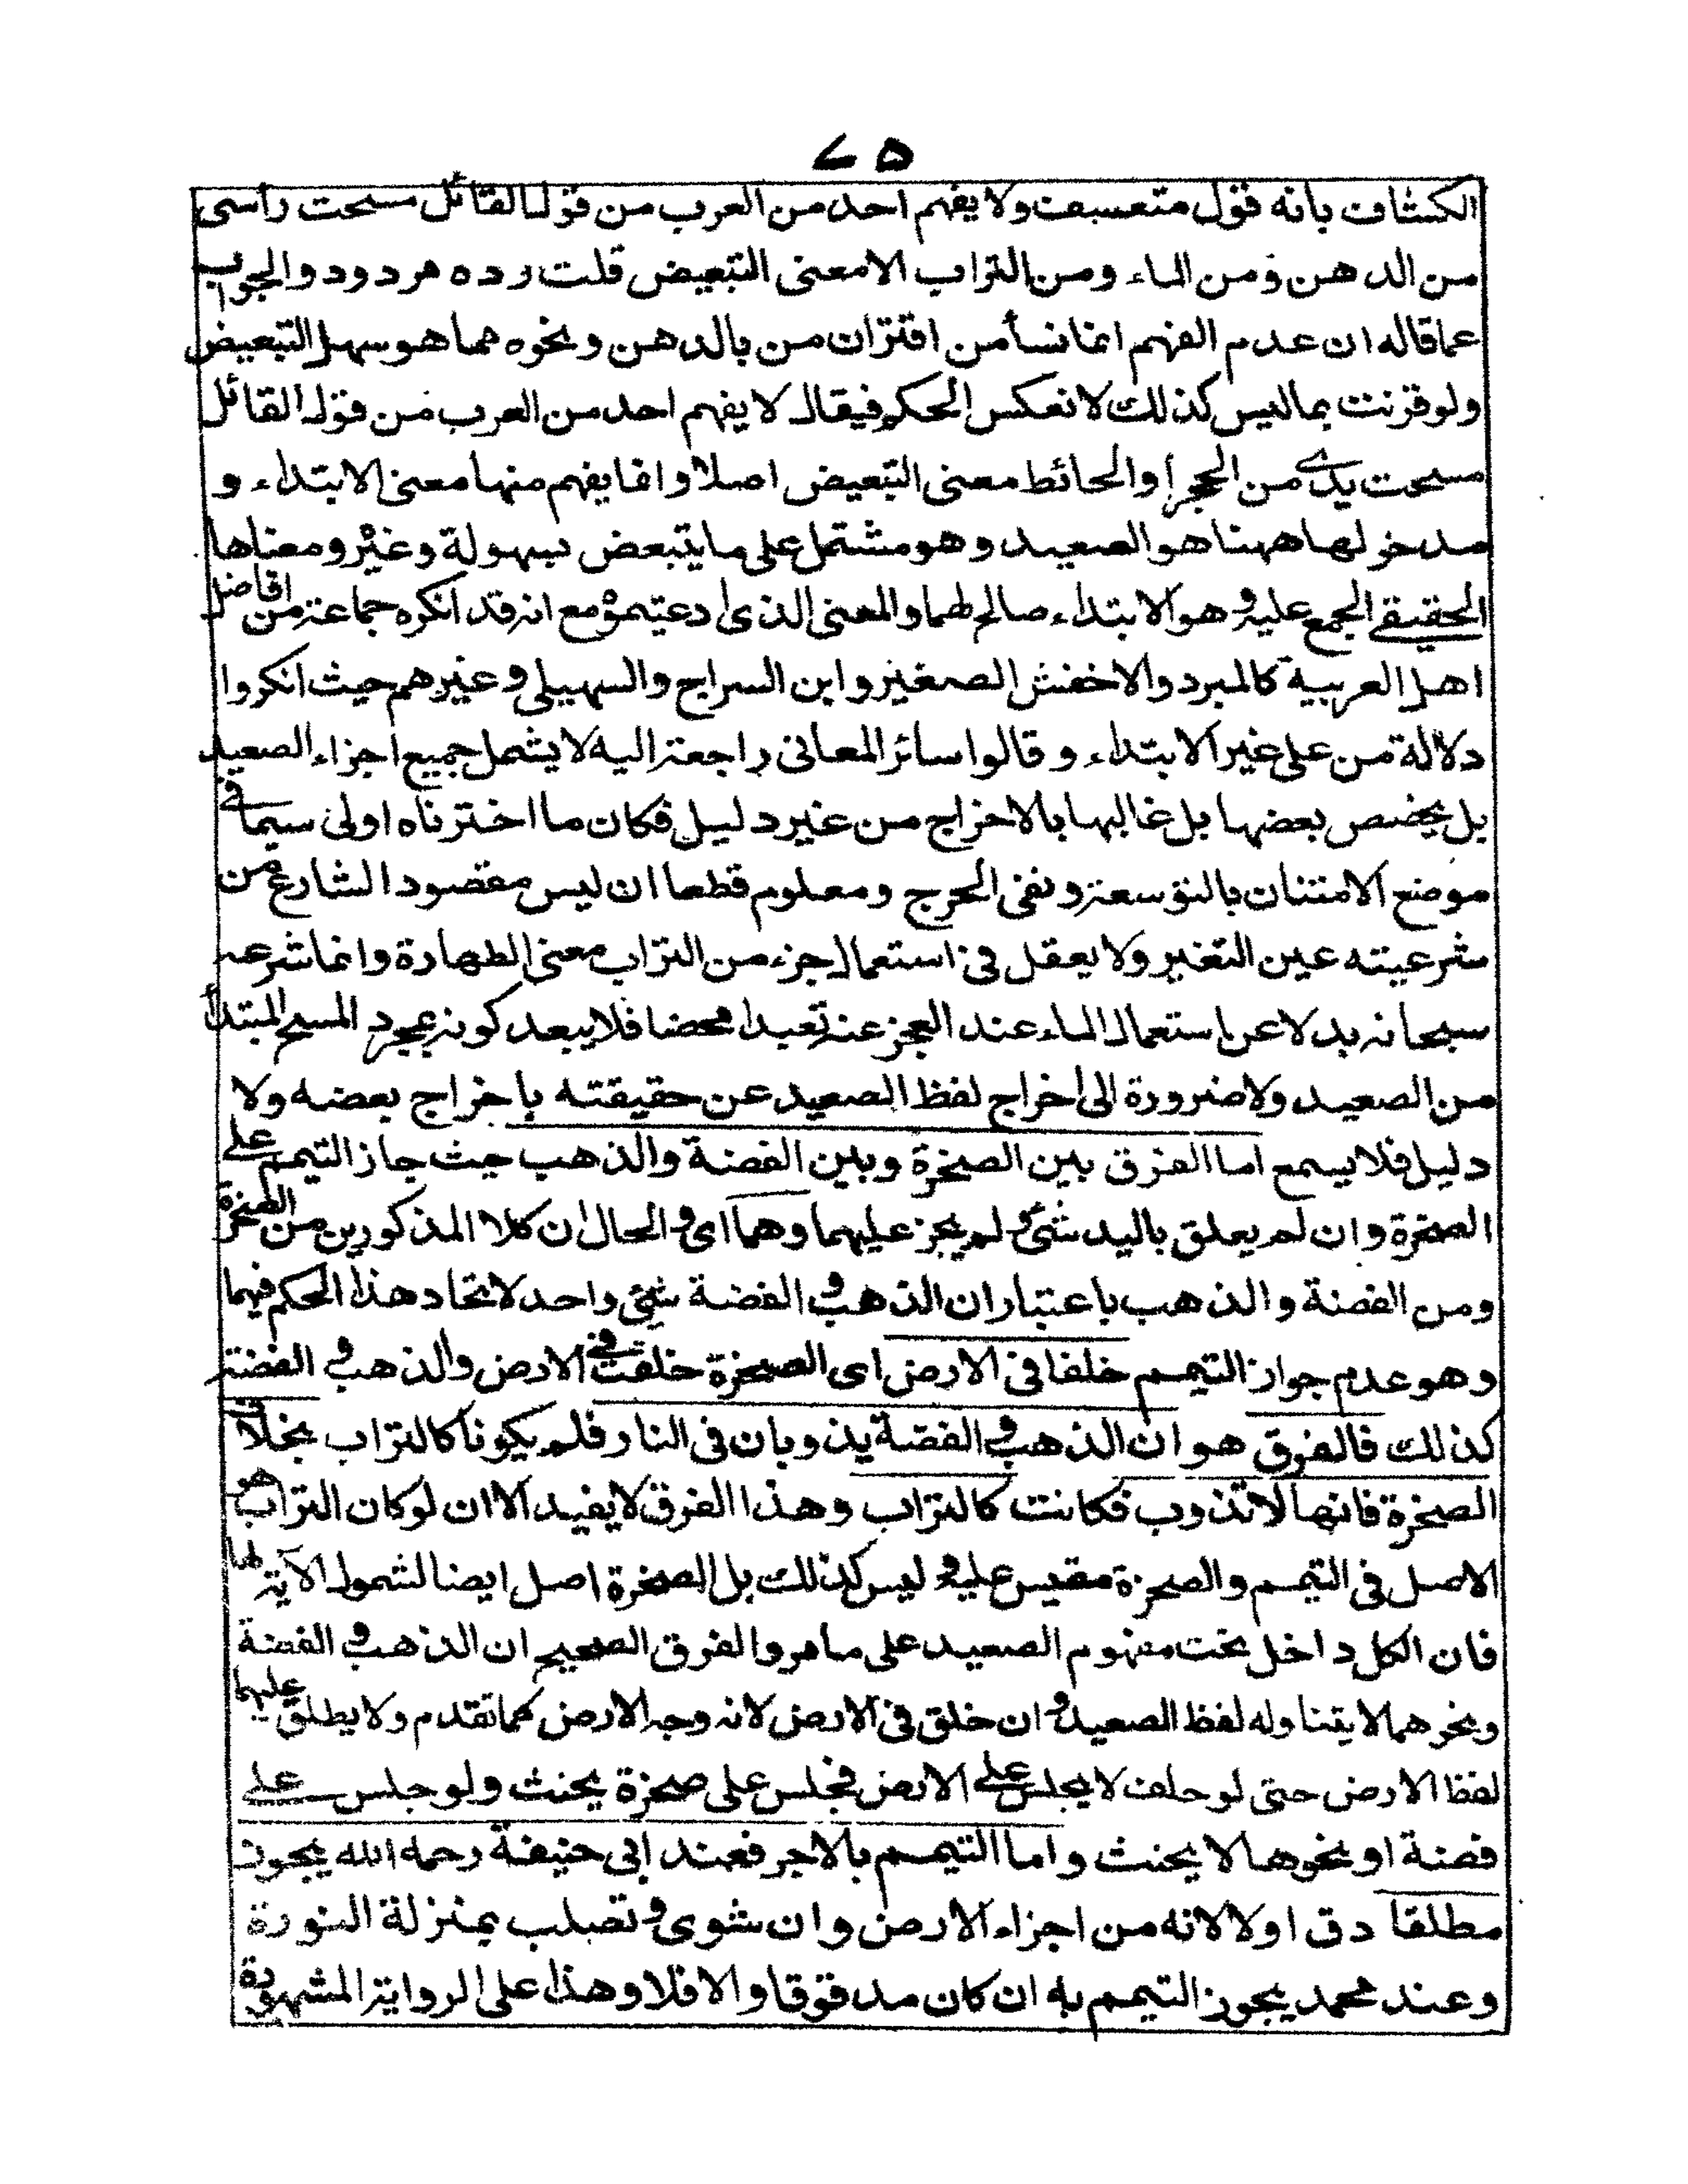 ٧٥
الكشاف بانه قول متعسف ولا يفهم احد من العرب من قول القائل مسحت رأسى
من الدهن ومن الماء ومن التراب الا معنى التبعيض قلت رده مردود والجواب
عما قاله ان عدم الفهم انما نشأ من اقتران من بالدهن ونحوه مما هو سهل التبعيض
ولو قرنت بما ليس كذلك لانعكس الحكم فيقال لا يفهم احد من العرب من قول القائل
مسحت يدى من الحجر او الحائط معنى التبعيض اصلا وانما يفهم منها معنى الابتداء و
مدخولها ههنا هو الصعيد وهو مشتمل على ما يتبعض بسهولة وغيره ومعناها
الحقيقى المجمع عليه وهو الابتداء صالح لهما والمعنى الذى ادعيتموه مع انه قد انكره جماعة من افاضل
اهل العربية كالمبرد والاخفش الصغير وابن السراج والسهيلى وغيرهم حيث انكروا
دلالة من على غير الابتداء وقالوا سائر المعانى راجعة اليه لا يشمل جميع اجزاء الصعيد
بل يخصص بعضها بل غالبها بالاخراج من غير دليل فكان ما اخترناه اولى سيما فى
موضع الامتنان بالتوسعة ونفى الحرج ومعلوم قطعا ان ليس مقصود الشارع من
شرعيته عين التغبير ولا يعقل فى استعمال جزء من التراب معنى الطهارة وانما شرعه
سبحانه بدلا عن استعمال الماء عند العجز عنه تعبدا محضا فلا يبعد كونه بمجرد المسح المبتدأ
من الصعيد ولا ضرورة الى اخراج لفظ الصعيد عن حقيقته باخراج بعضه ولا
دليل فلا يسمع اما الفرق بين الصخرة وبين الفضة والذهب حيث جاز التيمم على
الصخرة وان لم يعلق باليد شئ ولم يجز عليهما وهما اى والحال ان كلا المذكورين من الصخرة
ومن الفضة والذهب باعتبار ان الذهب والفضة شئ واحد لاتحاد هذا الحكم فيهما
وهو عدم جواز التيمم خلقا فى الارض اى الصخرة خلقت فى الارض والذهب والفضة
كذلك فالفرق هو ان الذهب والفضة يذوبان فى النار فلم يكونا كالتراب بخلاف
الصخرة فانها لا تذوب فكانت كالتراب وهذا الفرق لا يفيد الا ان لو كان التراب هو
الاصل فى التيمم والصخرة مقيس عليه وليس كذلك بل الصخرة اصل ايضا لشمول الآية لها
فان الكل داخل تحت مفهوم الصعيد على ما مر والفرق الصحيح ان الذهب والفضة
ونحوهما لا يتناوله لفظ الصعيد وان خلق فى الارض لانه وجه الارض كما تقدم ولا يطلق عليهما
لفظ الارض حتى لو حلف لا يجلس على الارض فجلس على صخرة يحنث ولو جلس على
فضة او نحوها لا يحنث واما التيمم بالاجر فعند ابى حنيفة رحمه الله يجوز
مطلقا دق اولا لانه من اجزاء الارض وان شوى وتصلب بمنزلة النورة
وعند محمد يجوز التيمم به ان كان مدقوقا والا فلا وهذا على الرواية المشهورة